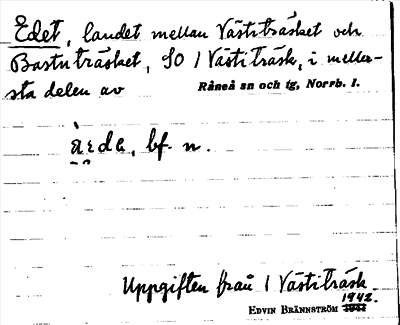 Edet, landet mellan Västiträsket och
Bastuträsket, SO / Västiträsk, i meller-
sta delen av Råneå sn och tg, Norrb. l.
bf. n.
Uppgiften från / Västiträsk
1942.
EDVIN BRÄNNSTRÖM